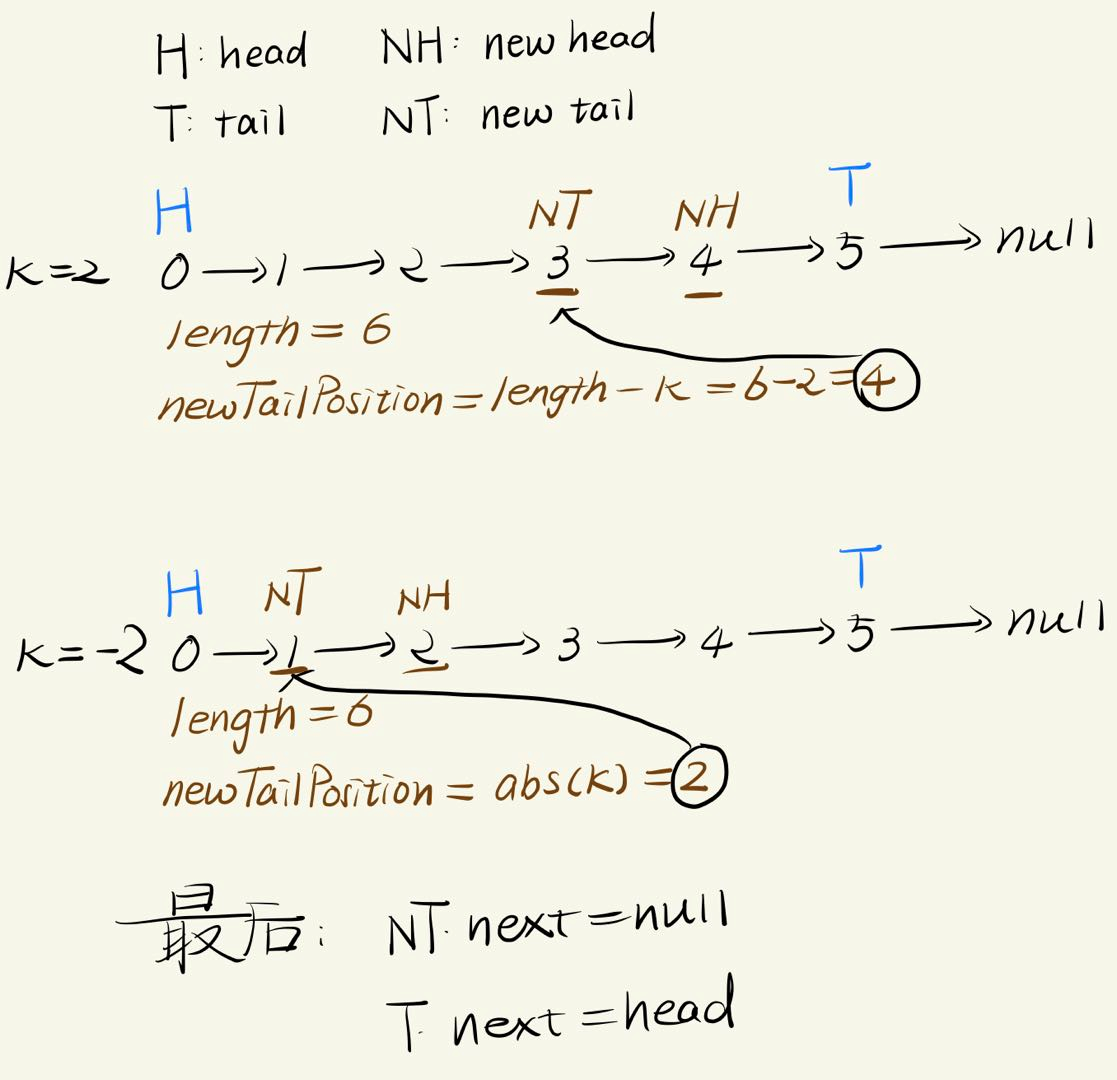 H: head NH: new head
T: tail NT: new tail
H NT NH T
k=2 0 → 1 → 2 → 3 → 4 → 5 → null
length = 6
newTailPosition = length - k = 6-2=4
H NT NH T
k=-2 0 → 1 → 2 → 3 → 4 → 5 → null
length = 6
newTailPosition = abs(k) = 2
最后: NT. next = null
T. next = head